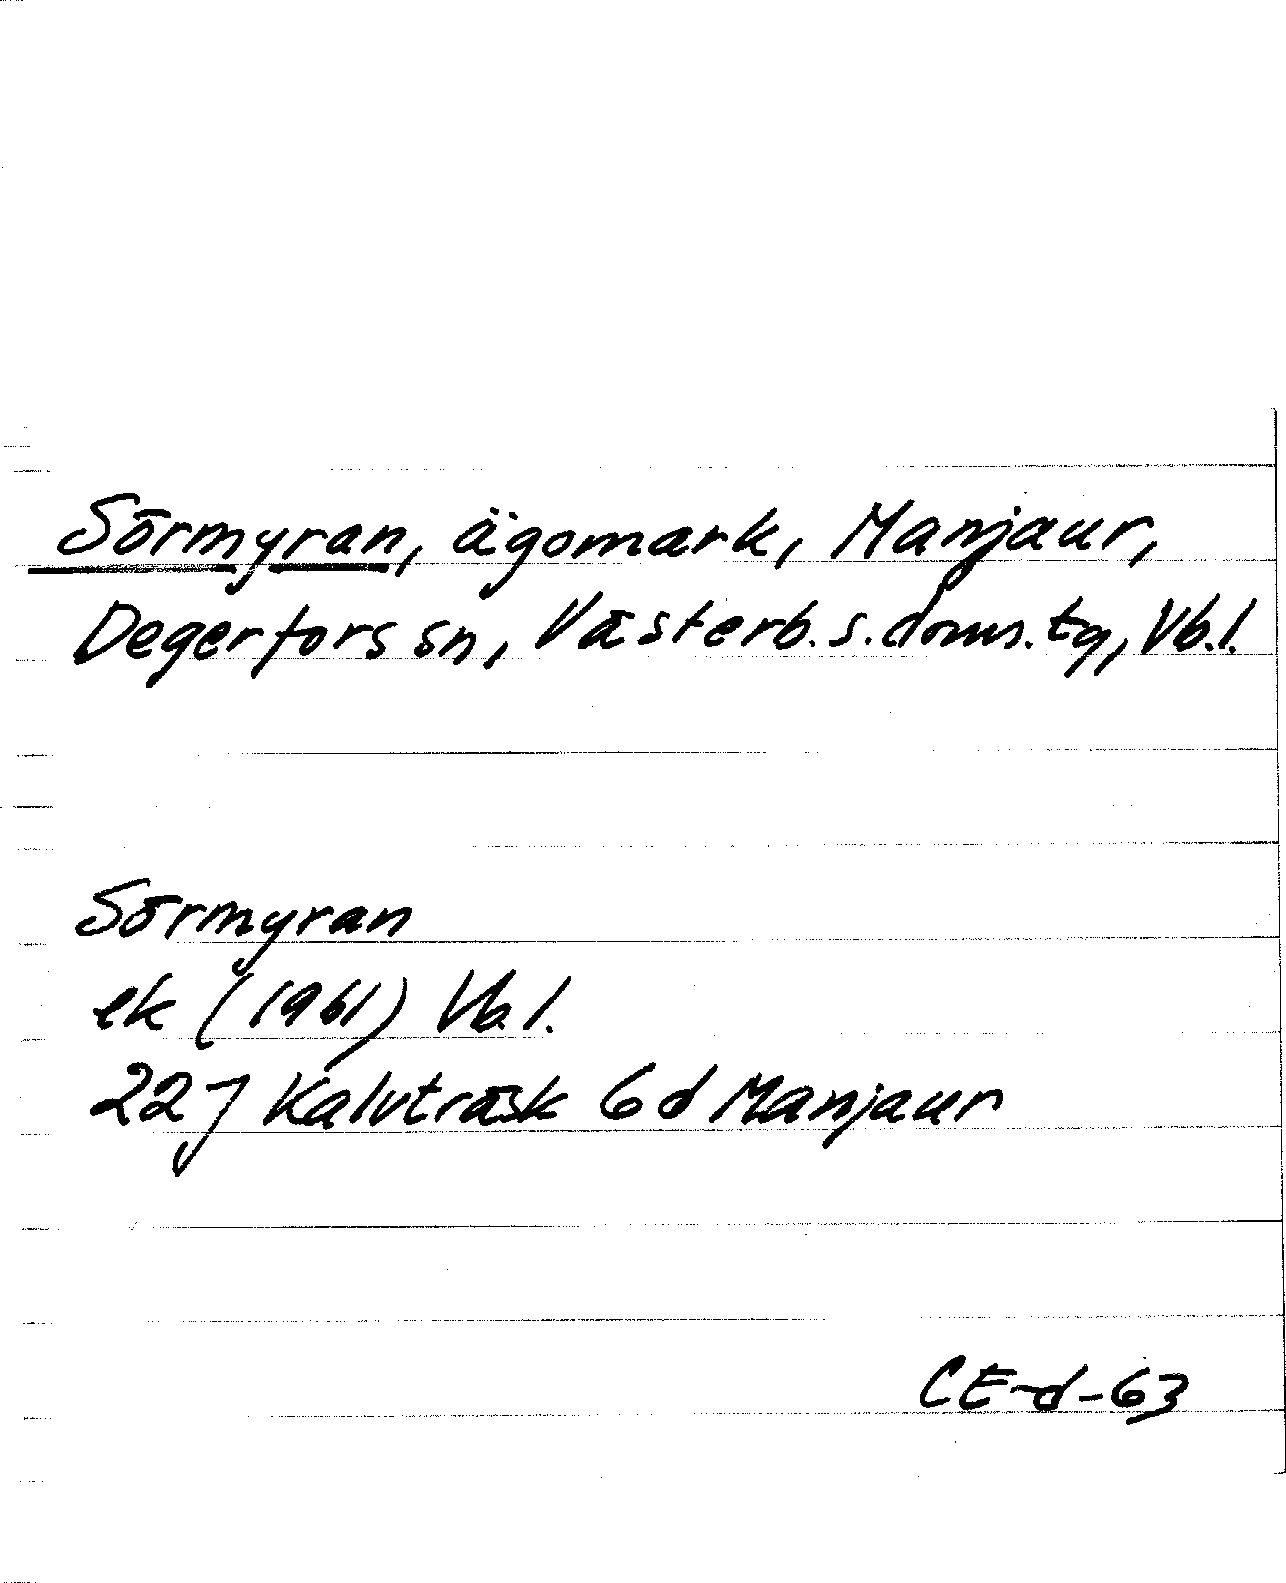 Sörmyran, ägomark, Manjaur,
Degerfors sn, Västerb. s. doms. tg, Vb. l.
Sörmyran
ek (1961) Vb. l.
22 J Kalvträsk 6 d Manjaur
CE-d-63